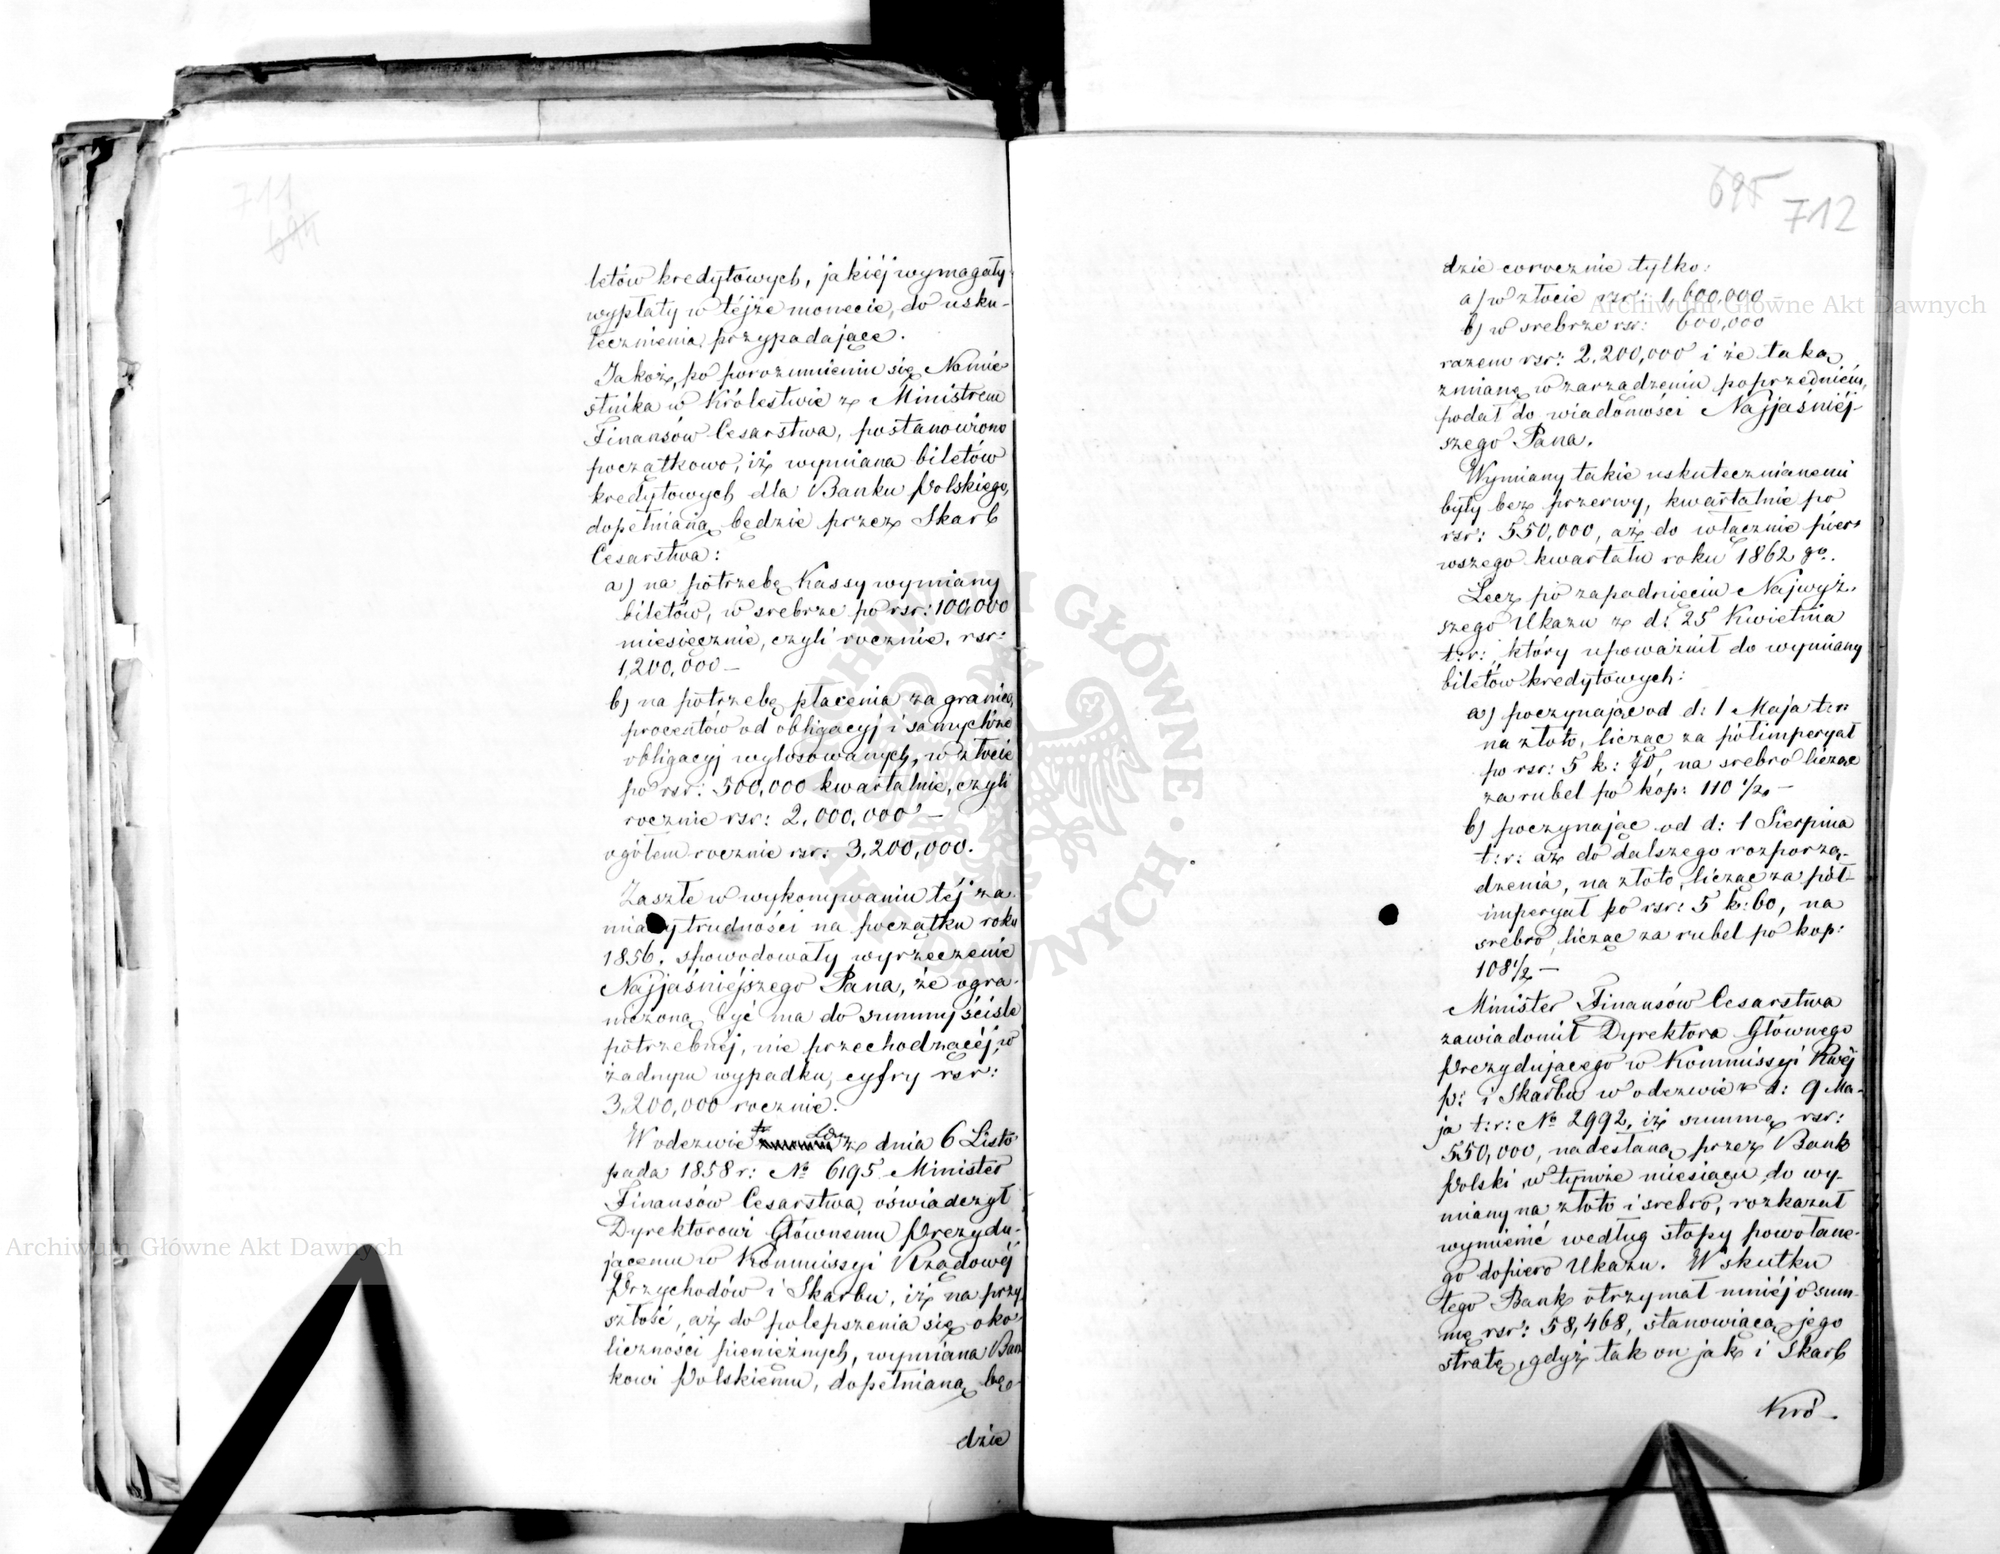 711
letów kredytowych, jakiéj wymagały
wypłaty w téjże monecie, do usku-
tecznienia przypadające.
Jakoż, po porozumieniu się Namie
stnika w Królestwie z Ministrem
Finansów Cesarstwa, postanowiono
początkowo, iż wymiana biletów
kredytowych dla Banku Polskiego,
dopełnianą będzie przez Skarb
Cesarstwa:
a) na potrzebę Kassy wymiany
biletów, w srebrze po rsr: 100,000
miesięcznie, czyli rocznie, rsr:
1,200,000 –
b) na potrzebę płacenia za granicą
procentów od obligacyj i samychże
obligacyj wylosowanych, w złocie
po rsr: 500,000 kwartalnie, czyli
rocznie rsr: 2,000,000 –
ogółem rocznie rsr: 3,200,000.
Zaszłe w wykonywaniu téj za-
miany trudności na początku roku
1856. spowodowały wyrzeczenie
Najjaśniéjszego Pana, że ogra-
niczoną być ma do summy ściśle
potrzebnéj, nie przechodzącéj, w
żadnym wypadku, cyfry rsr:
3,200,000 rocznie.
W odezwie z dnia 6 Listo
pada 1858 r: No 6195 Minister
Finansów Cesarstwa, oświadczył
Dyrektorowi Głównemu Prezydu-
jącemu w Kommissyi Rządowéj
Przychodów i Skarbu, iż na przy
szłość, aż do polepszenia się oko-
liczności pieniężnych, wymiana Ban
kowi Polskiemu, dopełnianą bę-
dzie
695
712
dzie corocznie tylko:
a) w złocie rsr: 1,600,000 –
b) w srebrze rsr: 600,000
razem rsr: 2,200,000 i że taką
zmianę w zarządzeniu poprzedniém,
podał do wiadomości Najjaśniéj-
szego Pana.
Wymiany takie uskutecznianemi
były bez przerwy, kwartalnie po
rsr: 550,000, aż do włącznie pier-
wszego kwartału roku 1862 go.
Lecz po zapadnięciu Najwyż-
szego Ukazu z d: 25 Kwietnia
t: r:, który upoważnił do wymiany
biletów kredytowych:
a) poczynając od d: 1 Maja t: r:
na złoto, licząc za półimperyał
po rsr: 5 k: 70, na srebro licząc
za rubel po kop: 110 1/2 –
b) poczynając od d: 1 Sierpnia
t: r: aż do dalszego rozporzą-
dzenia, na złoto, licząc za pół-
imperyał po rsr: 5 k: 60, na
srebro, licząc za rubel po kop:
108 1/2 –
Minister Finansów Cesarstwa
zawiadomił Dyrektora Głównego
Prezydującego w Kommissyi Rwéj
P: i Skarbu w odezwie z d: 9 Ma-
ja t: r: No 2992, iż summę rsr:
550,000, nadesłaną przez Bank
Polski w tymże miesiącu, do wy-
miany na złoto i srebro, rozkazał
wymienić według stopy powołane-
go dopiero Ukazu. W skutku
tego Bank otrzymał mniéj o sum-
mę rsr: 58,468, stanowiącą jego
stratę, gdyż tak on jak i Skarb
Kró-
Archiwum Główne Akt Dawnych
Archiwum Główne Akt Dawnych
ARCHIWUM GŁÓWNE AKT DAWNYCH